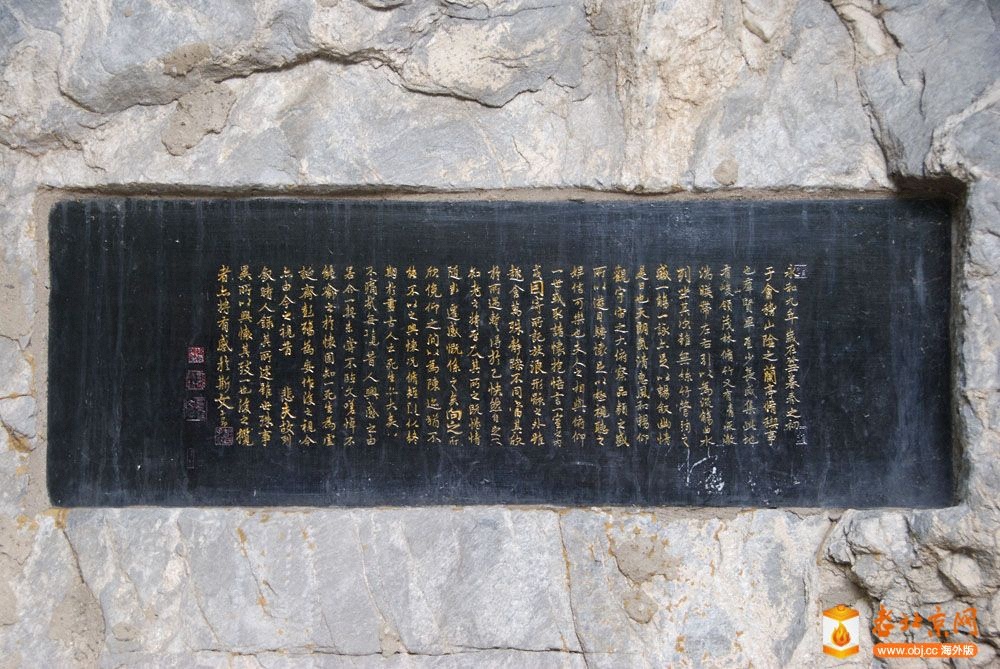 永和九年歲在癸丑暮春之初會
于會稽山陰之蘭亭脩稧事
也羣賢畢至少長咸集此地
有峻領茂林脩竹又有清流激
湍暎帶左右引以為流觴曲水
列坐其次雖無絲竹管弦之
盛一觴一詠亦足以暢叙幽情
是日也天朗氣清惠風和暢仰
觀宇宙之大俯察品類之盛
所以遊目騁懷足以極視聽之
娛信可樂也夫人之相與俯仰
一世或取諸懷抱悟言一室之內
或因寄所託放浪形骸之外雖
趣舍萬殊靜躁不同當其欣
於所遇蹔得於己怏然自足不
知老之將至及其所之既惓情
隨事遷感慨係之矣向之所
欣俛仰之間以為陳迹猶不
能不以之興懷況脩短隨化終
期於盡古人云死生亦大矣豈
不痛哉每攬昔人興感之由
若合一契未嘗不臨文嗟悼不
能喻之於懷固知一死生為虛
誕齊彭殤為妄作後之視今
亦由今之視昔 悲夫故列
叙時人錄其所述雖世殊事
異所以興懷其致一也後之攬
者亦將有感於斯文
老北京网
www.obj.cc 海外版